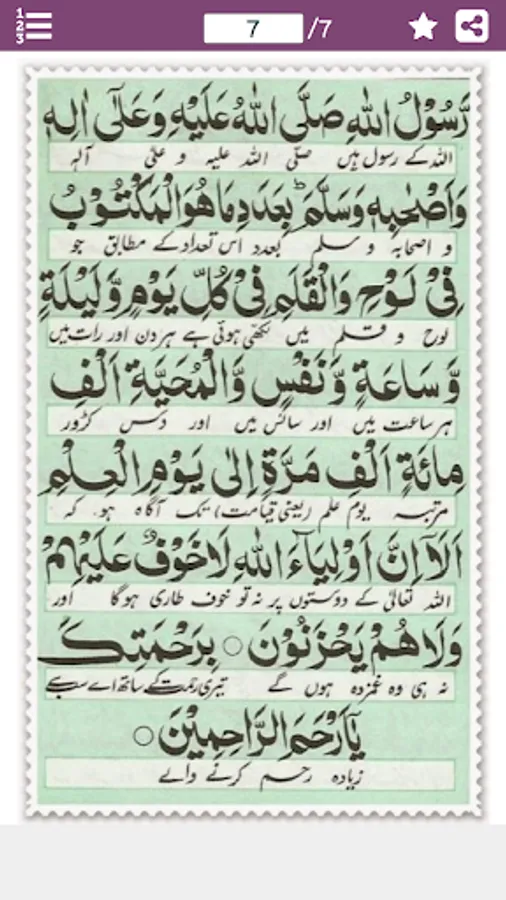 1
2
3
7 /7
رَّسُوْلُ اللهِ صَلَّى اللهُ عَلَيْهِ وَعَلٰى اٰلِهٖ
اللہ کے رسول ہیں صلّی اللہ علیہ و علیٰ آلہٖ
وَاَصْحٰبِهٖ وَسَلَّمَ ط بِعَدَدِ مَا هُوَ الْمَكْتُوْبُ
و اصحابہٖ و سلم بعدد اس تعداد کے مطابق جو
فِیْ لَوْحِ وَالْقَلَمِ فِیْ كُلِّ يَوْمٍ وَّ لَيْلَةٍ
لوح و قلم میں لکھی ہوئی ہے ہر دن اور رات میں
وَّ سَاعَةٍ وَّنَفْسٍ وَّالْمُحَيَّةِ اَلْفِ
ہر ساعت میں اور سانس میں اور دس کڑور
مِائَةٍ اَلْفِ مَرَّةٍ اِلٰى يَوْمِ الْعِلْمِ
مرتبہ یوم علم (یعنی قیامت) تک آگاہ ہو۔ کہ
اَلَآ اِنَّ اَوْلِيَآءَ اللهِ لَا خَوْفٌ عَلَيْهِمْ
اللہ تعالیٰ کے دوستوں پر نہ تو خوف طاری ہوگا اور
وَلَا هُمْ يَحْزَنُوْنَ ○ بِرَحْمَتِكَ
نہ ہی وہ غمزدہ ہوں گے تیری رحمت کے ساتھ اے سب سے
يَآ اَرْحَمَ الرَّاحِمِيْنَ ○
زیادہ رحم کرنے والے